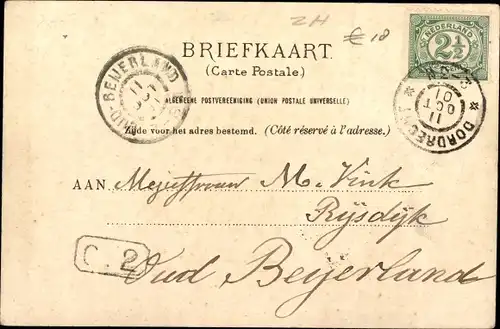 ZH
€ 18
NEDERLAND
2½
BRIEFKAART.
(Carte Postale.)
OUD-BEIJERLAND
11 OCT
DORDRECHT
11 OCT 01
ALGEMEENE POSTVEREENIGING (UNION POSTALE UNIVERSELLE)
Zijde voor het adres bestemd. (Côté réservé à l'adresse.)
AAN Mejuffrouw M. Vink
Rijsdijk
C. 2
Oud Beijerland